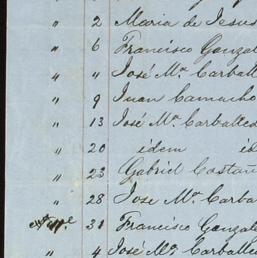 " 2 Maria de Jesus
" 6 Francisco Gonzal
" " José Mª. Carball
" 9 Juan Camacho
" 13 José Mª. Carballed
" 20 idem id
" 23 Gabriel Costañ
" 28 Jose Mª. Carba
31 Francisco Gonzal
" 4 José Mª. Carballed